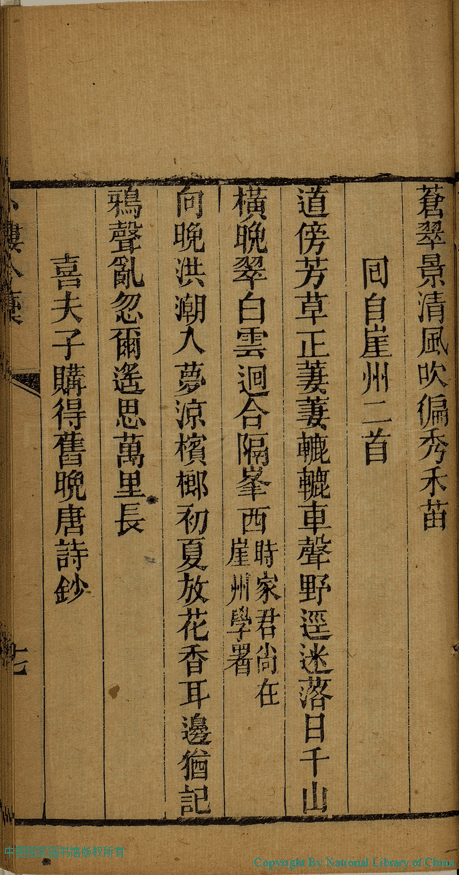 蒼翠景清風吹徧秀禾苗
回自崖州二首
道傍芳草正萋萋轆轆車聲野逕迷落日千山
橫晚翠白雲迴合隔峯西時家君尚在崖州學署
向晚洪潮入夢涼檳榔初夏放花香耳邊猶記
鴉聲亂忽爾遙思萬里長
喜夫子購得舊晚唐詩鈔
七
Copyright By National Library of China